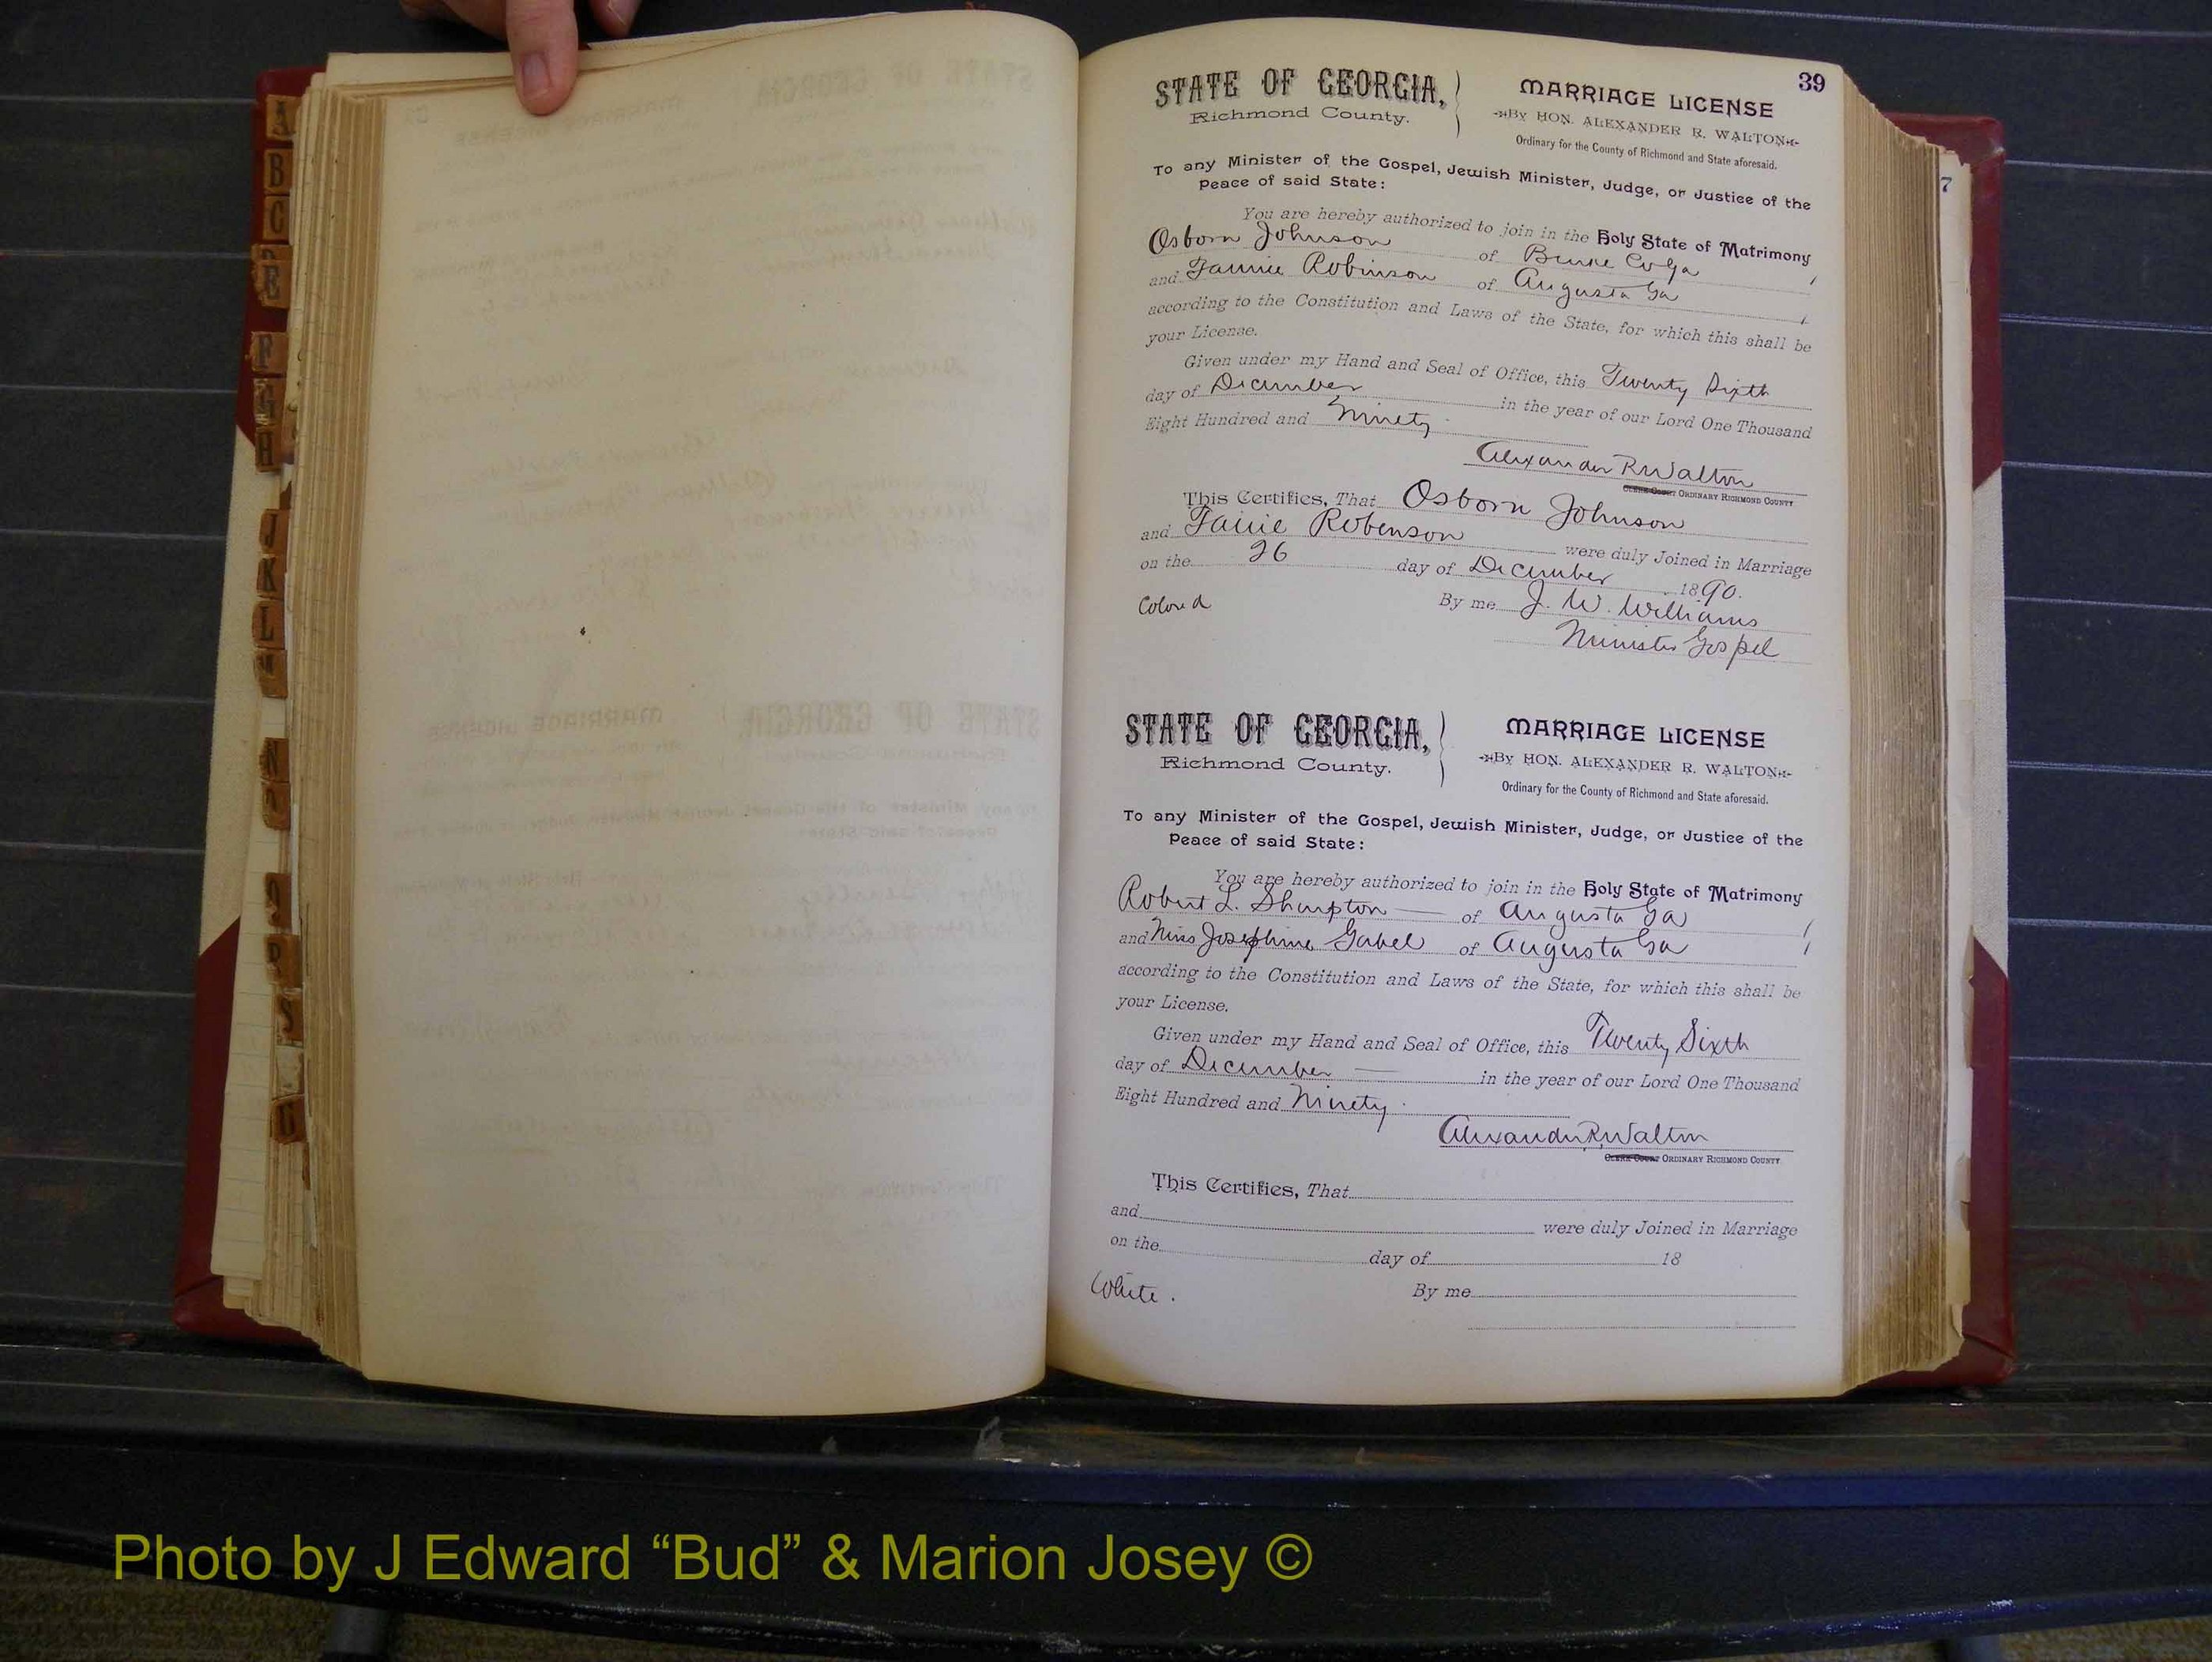 39
STATE OF GEORGIA,
Richmond County.
MARRIAGE LICENSE
By HON. ALEXANDER R. WALTON
Ordinary for the County of Richmond and State aforesaid.
To any Minister of the Gospel, Jewish Minister, Judge, or Justice of the
Peace of said State:
You are hereby authorized to join in the Holy State of Matrimony
Osborn Johnson of Burke Co Ga
and Fannie Robinson of Augusta Ga
according to the Constitution and Laws of the State, for which this shall be
your License.
Given under my Hand and Seal of Office, this Twenty Sixth
day of December in the year of our Lord One Thousand
Eight Hundred and Ninety
Alexander R Walton
CLERK COURT ORDINARY RICHMOND COUNTY
This Certifies, That Osborn Johnson
and Fanie Robenson were duly Joined in Marriage
on the 26 day of December 1890.
Colored By me J. W. Williams
Minister Gospel
STATE OF GEORGIA,
Richmond County.
MARRIAGE LICENSE
By HON. ALEXANDER R. WALTON
Ordinary for the County of Richmond and State aforesaid.
To any Minister of the Gospel, Jewish Minister, Judge, or Justice of the
Peace of said State:
You are hereby authorized to join in the Holy State of Matrimony
Robert L. of Augusta Ga
and Miss Josephine Gabel of Augusta Ga
according to the Constitution and Laws of the State, for which this shall be
your License.
Given under my Hand and Seal of Office, this Twenty Sixth
day of December in the year of our Lord One Thousand
Eight Hundred and Ninety
Alexander R Walton
CLERK COURT ORDINARY RICHMOND COUNTY
This Certifies, That
and were duly Joined in Marriage
on the day of 18
White. By me
7
A
B
C
E
F
G
H
J
K
L
M
N
O
P
S
Photo by J Edward “Bud” & Marion Josey ©